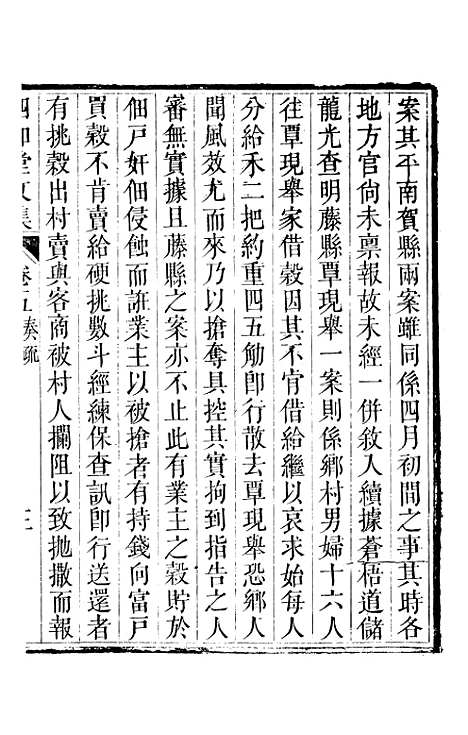 案其平南賀縣兩案雖同係四月初間之事其時各
地方官尙未稟報故未經一併敘入續據蒼梧道儲
龍光查明藤縣覃現舉一案則係鄉村男婦十六人
往覃現舉家借穀因其不肯借給繼以哀求始每人
分給禾二把約重四五觔卽行散去覃現舉恐鄉人
聞風效尤而來乃以搶奪具控其實拘到指告之人
審無實據且藤縣之案亦不止此有業主之穀貯於
佃戶奸佃侵蝕而誑業主以被搶者有持錢向富戶
買穀不肯賣給硬挑數斗經練保查訊卽行送還者
有挑穀出村賣與客商被村人攔阻以致拋撒而報
四知堂文集
卷五奏疏
三